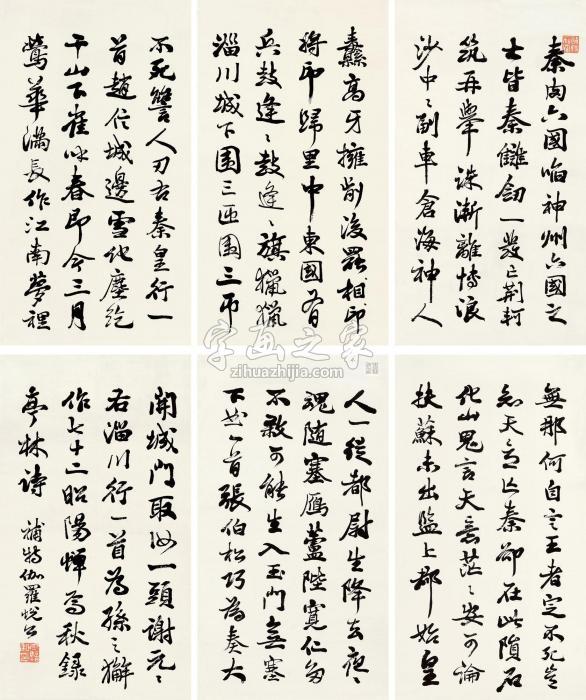 秦肉六國啗神州六國之
士皆秦讎劍一發亡荊軻
筑再舉誅漸離博浪
沙中〻副車倉海神人
無那何自言王者定不死豈
知天意亡秦卻在此隕石
化山鬼言天意茫〻安可論
扶蘇未出監上郡始皇
不死讐人刃右秦皇行一
首趙信城邊雪化塵紇
干山下雀呼春即今三月
鶯華滿長作江南夢裡
人一從都尉生降去夜〻
魂隨塞雁蘆陛寬仁多
不殺可能生入玉門無塞
下曲一首張伯松巧為奏大
纛高牙擁前後罷相印
將印歸里中東國有
兵鼓逢〻鼓逢〻旗獵獵
淄川城下圍三匝圍三帀
開城門取汝一頭謝元〻
右淄川行一首為孫〻獬
作七十二昭陽憚為秋錄
亭林詩
補特伽羅悅公
字画之家
zihuazhijia.com